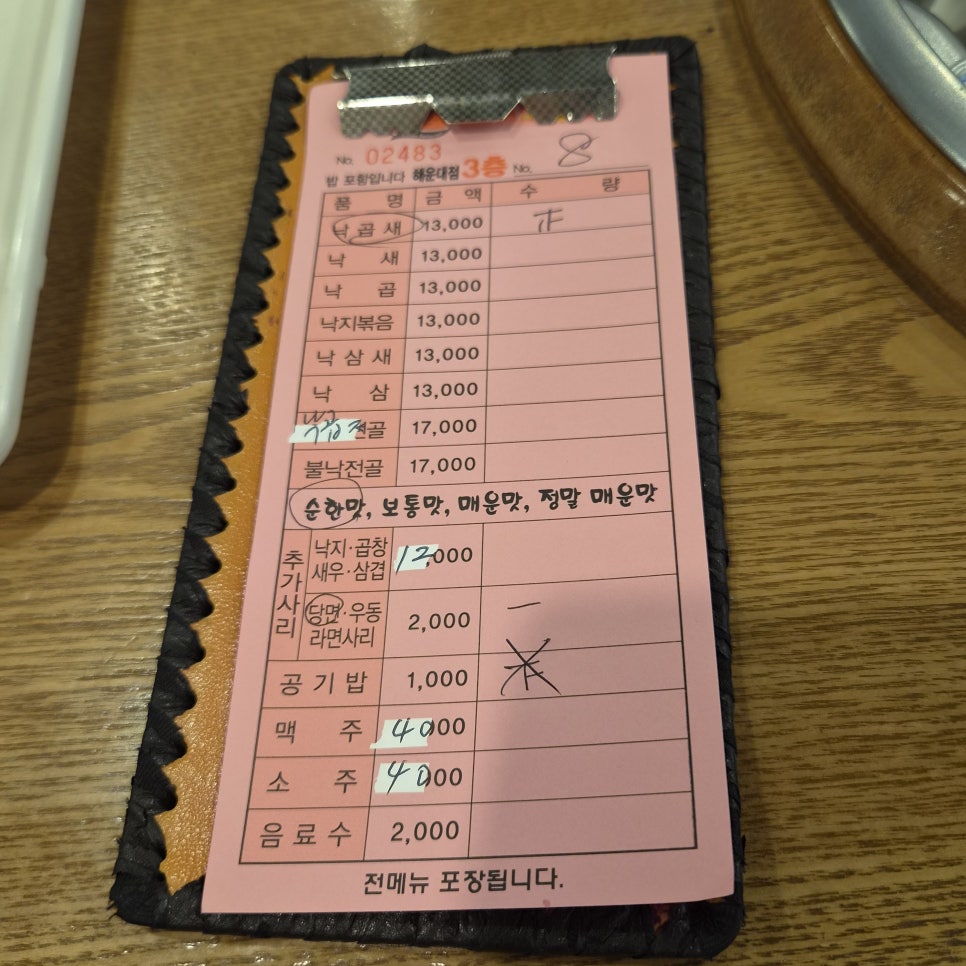 No. 02483
밥 포함입니다 해운대점 3층 No. 8
품 명 금 액 수 량
낙 곱 새 13,000 正
낙 새 13,000
낙 곱 13,000
낙지볶음 13,000
낙 삼 새 13,000
낙 삼 13,000
낙곱전골 17,000
불낙전골 17,000
순한맛, 보통맛, 매운맛, 정말 매운맛
추가사리
낙지·곱창
새우·삼겹
12,000
당면·우동
라면사리
2,000 一
공 기 밥 1,000
맥 주 4000
소 주 4000
음 료 수 2,000
전메뉴 포장됩니다.